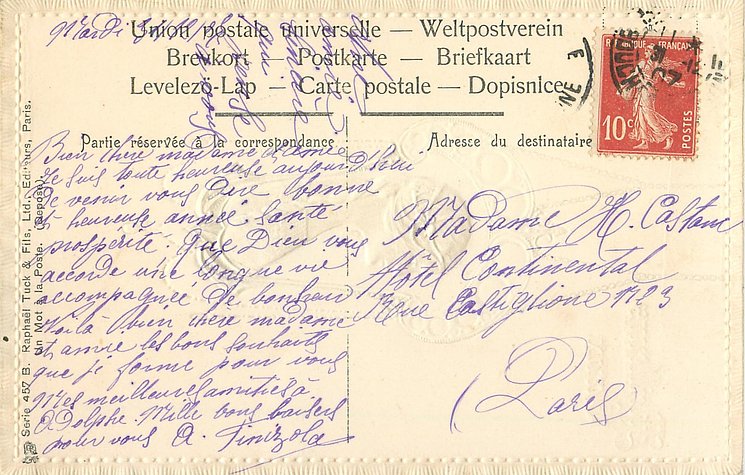 Mardi
Union postale universelle — Weltpostverein
Brevkort — Postkarte — Briefkaart
Levelező-Lap — Carte postale — Dopisnice
Partie réservée à la correspondance
Adresse du destinataire
Bien chère madame et amie
Je suis toute heureuse aujourd'hui
de venir vous dire bonne
et heureuse année santé
prospérité. que Dieu vous
accorde une longue vie
accompagnée de bonheur
voilà bien chère madame
et amie les bons souhaits
que je forme pour vous
Mes meilleures amitiés à
Adolphe. Mille bons baisers
pour vous A. Finizola
Madame H. Castanc
Hôtel Continental
Rue Castiglione
Paris
RÉPUBLIQUE FRANÇAISE
10c
POSTES
Serie 457 B. Raphaël Tuck & Fils, Ltd., Editeurs, Paris.
Un Mot à la Poste. (Déposé).